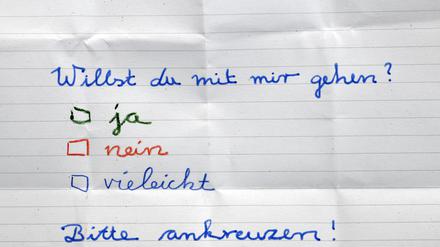 Willst du mit mir gehen?
ja
nein
vieleicht
Bitte ankreuzen!